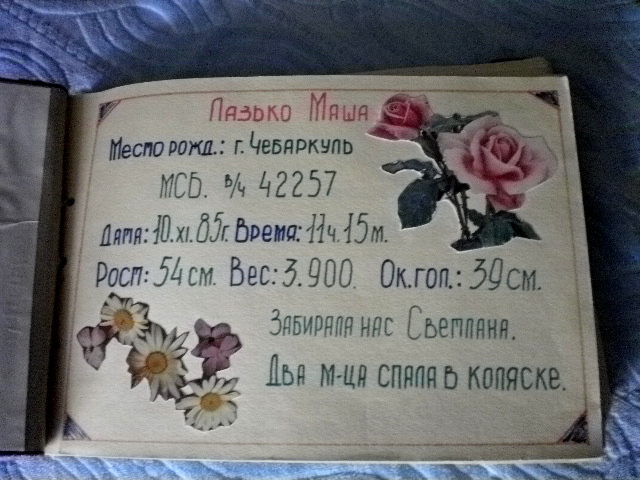 Лазько Маша
Место рожд.: г. Чебаркуль
МСБ. в/ч 42257
Дата: 10.XI.85г. Время: 11ч.15м.
Рост: 54 см. Вес: 3.900. Ок.гол.: 39 см.
Забирала нас Светлана.
Два м-ца спала в коляске.